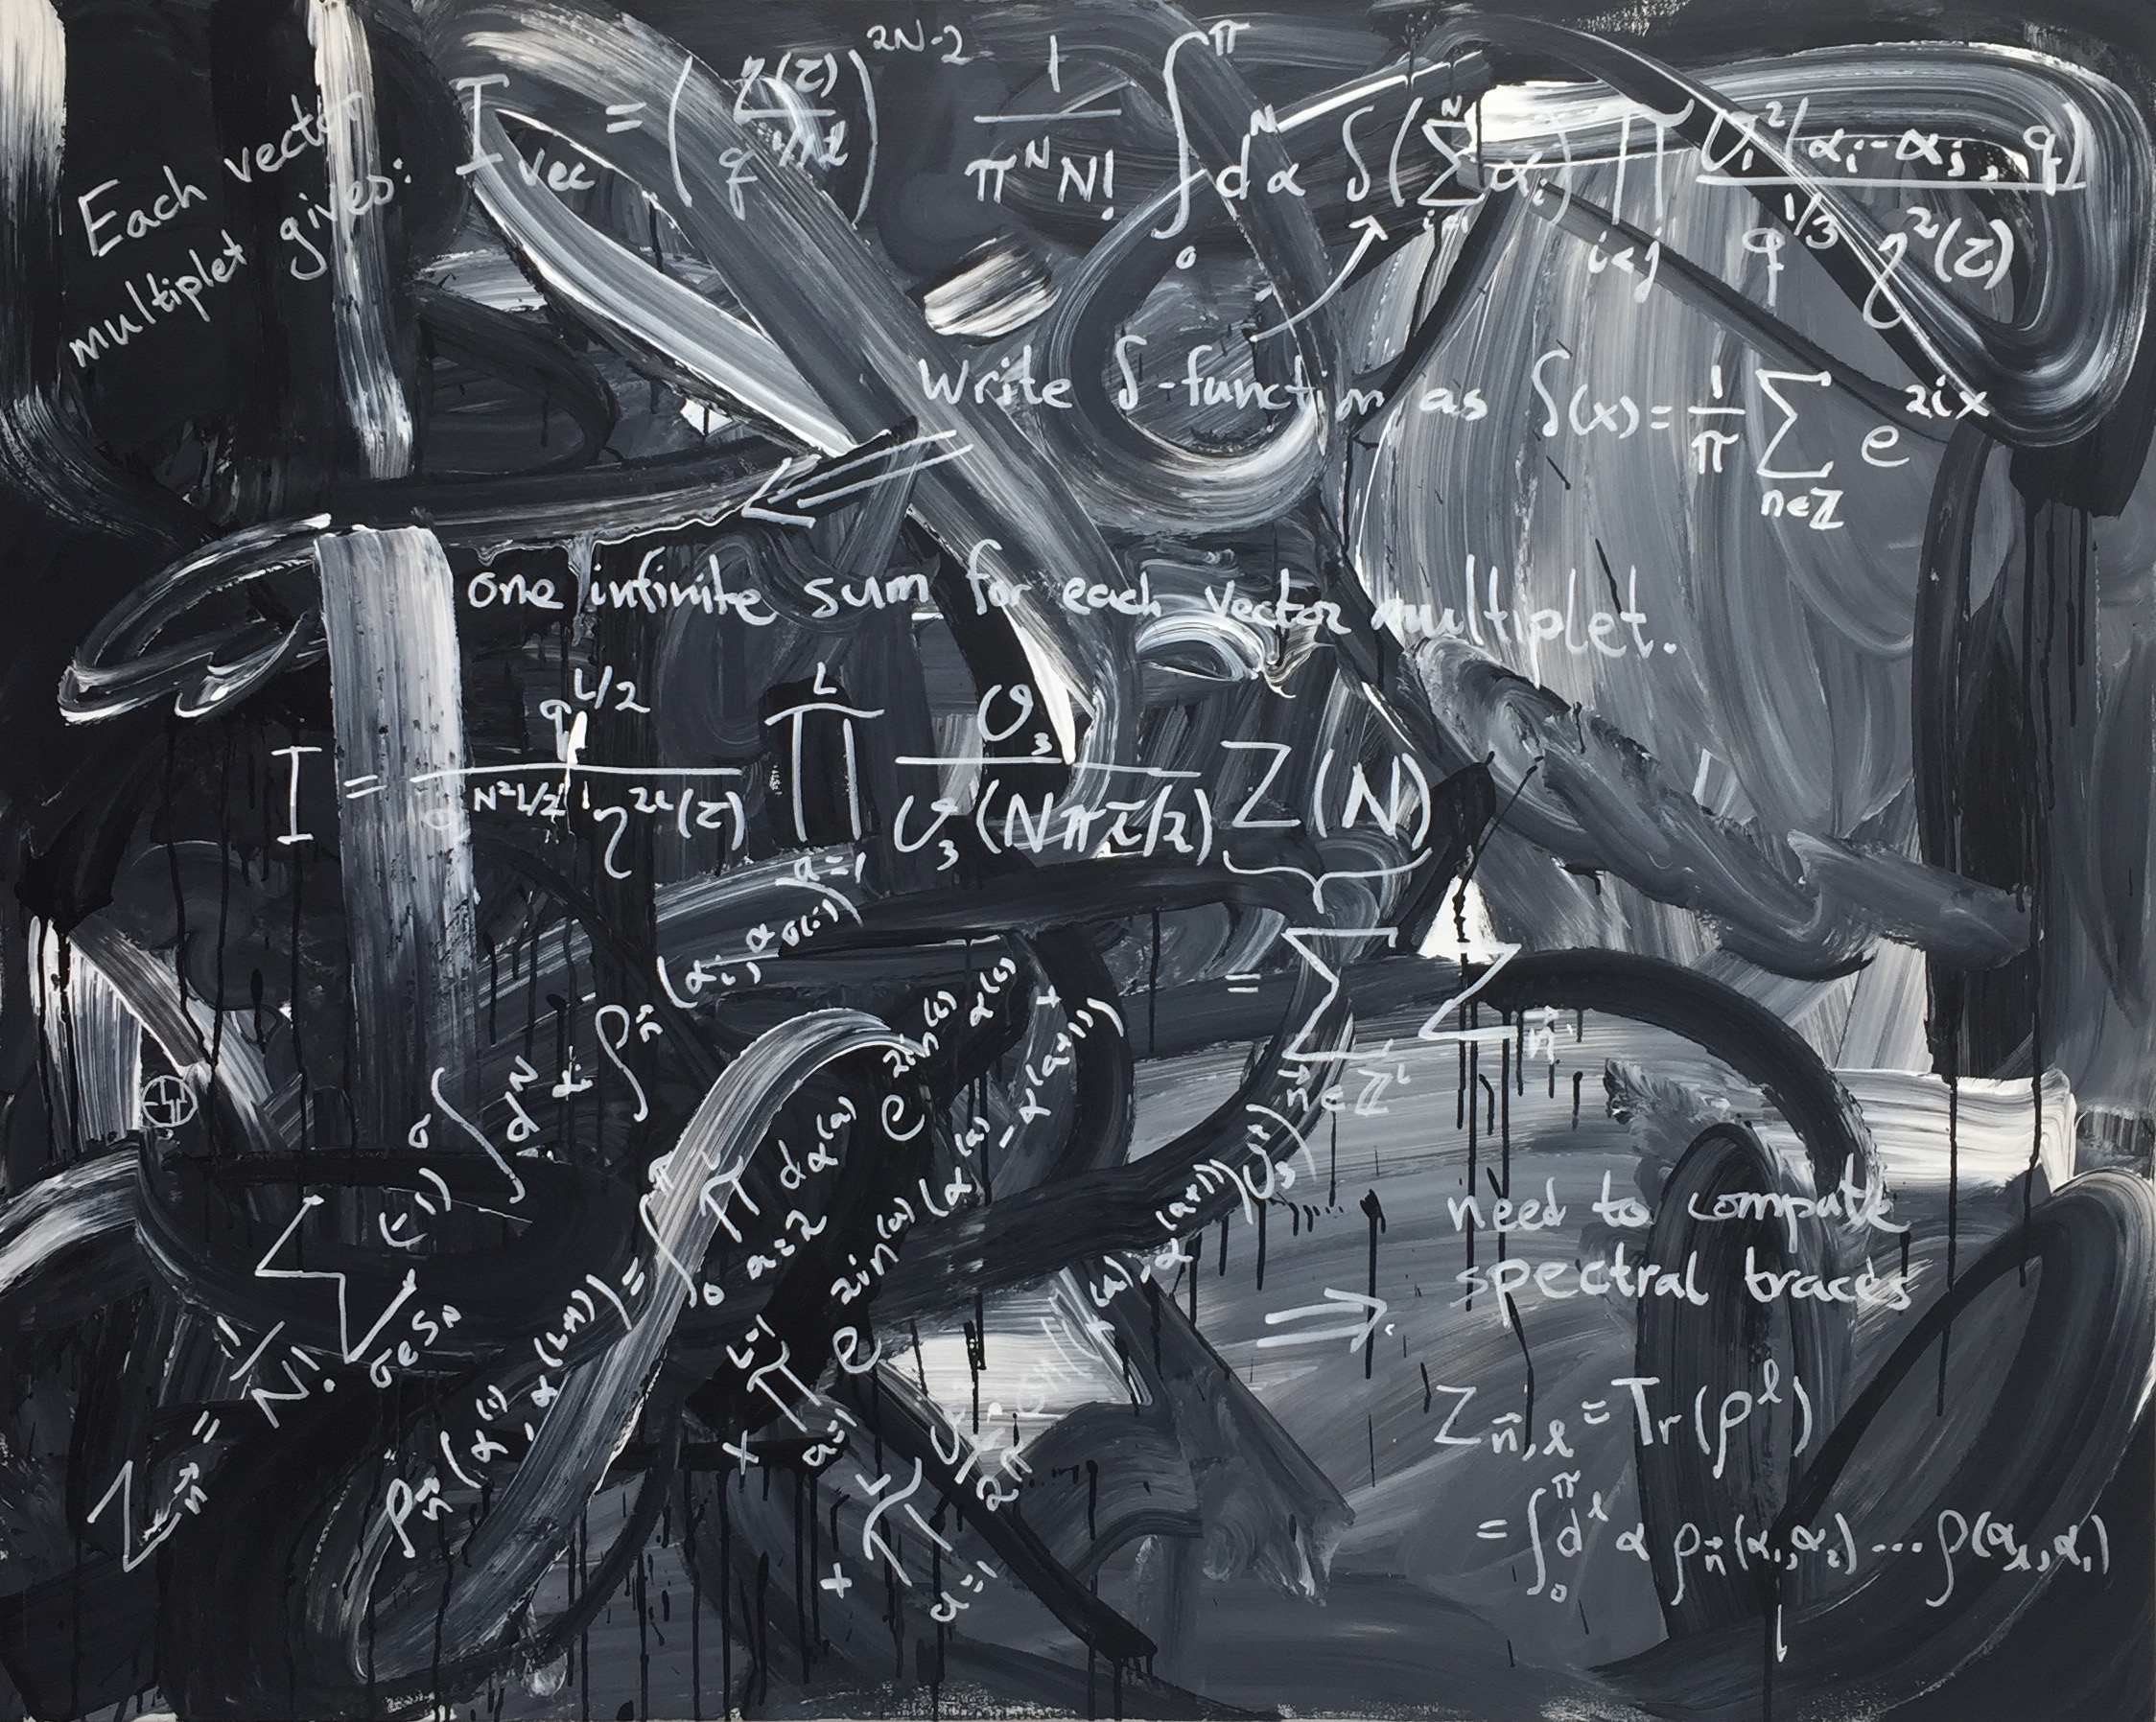 Each vector
multiplet gives:
I_vec = (η(τ)/q^{1/12})^{2N-2} 1/(π^N N!) ∫_0^π d^Nα δ(Σ_{i=1}^N α_i) ∏_{i<j} ϑ_1^2(α_i-α_j, q)/(q^{1/3} η^2(τ))
Write δ-function as δ(x)= 1/π Σ_{n∈ℤ} e^{2ix}
one infinite sum for each vector multiplet.
I = q^{L/2}/(q^{N²L/2} η^{2L}(τ)) ∏_{a=1}^L ϑ_3/(ϑ_3(Nπτ/2)) Z(N)
= Σ_{n⃗∈ℤ^L} Z_{n⃗}
Z_{n⃗} = 1/N! Σ_{σ∈S_N} (-1)^σ ∫ d^Nα_i ρ_{n⃗}(α_i, α_{σ(i)})
ρ_{n⃗}(α^{(1)}, α^{(L+1)}) = ∫_0^π ∏_{a=2}^L dα^{(a)} e^{2in^{(L)}α^{(L)}}
× ∏_{a=1}^{L-1} e^{2in^{(a)}(α^{(a)}-α^{(a+1)})}
× ∏_{a=1}^L
⇒ need to compute
spectral traces
Z_{n⃗,ℓ} = Tr(ρ^ℓ)
= ∫_0^π d^ℓα ρ_{n⃗}(α_1,α_2)...ρ(α_ℓ,α_1)